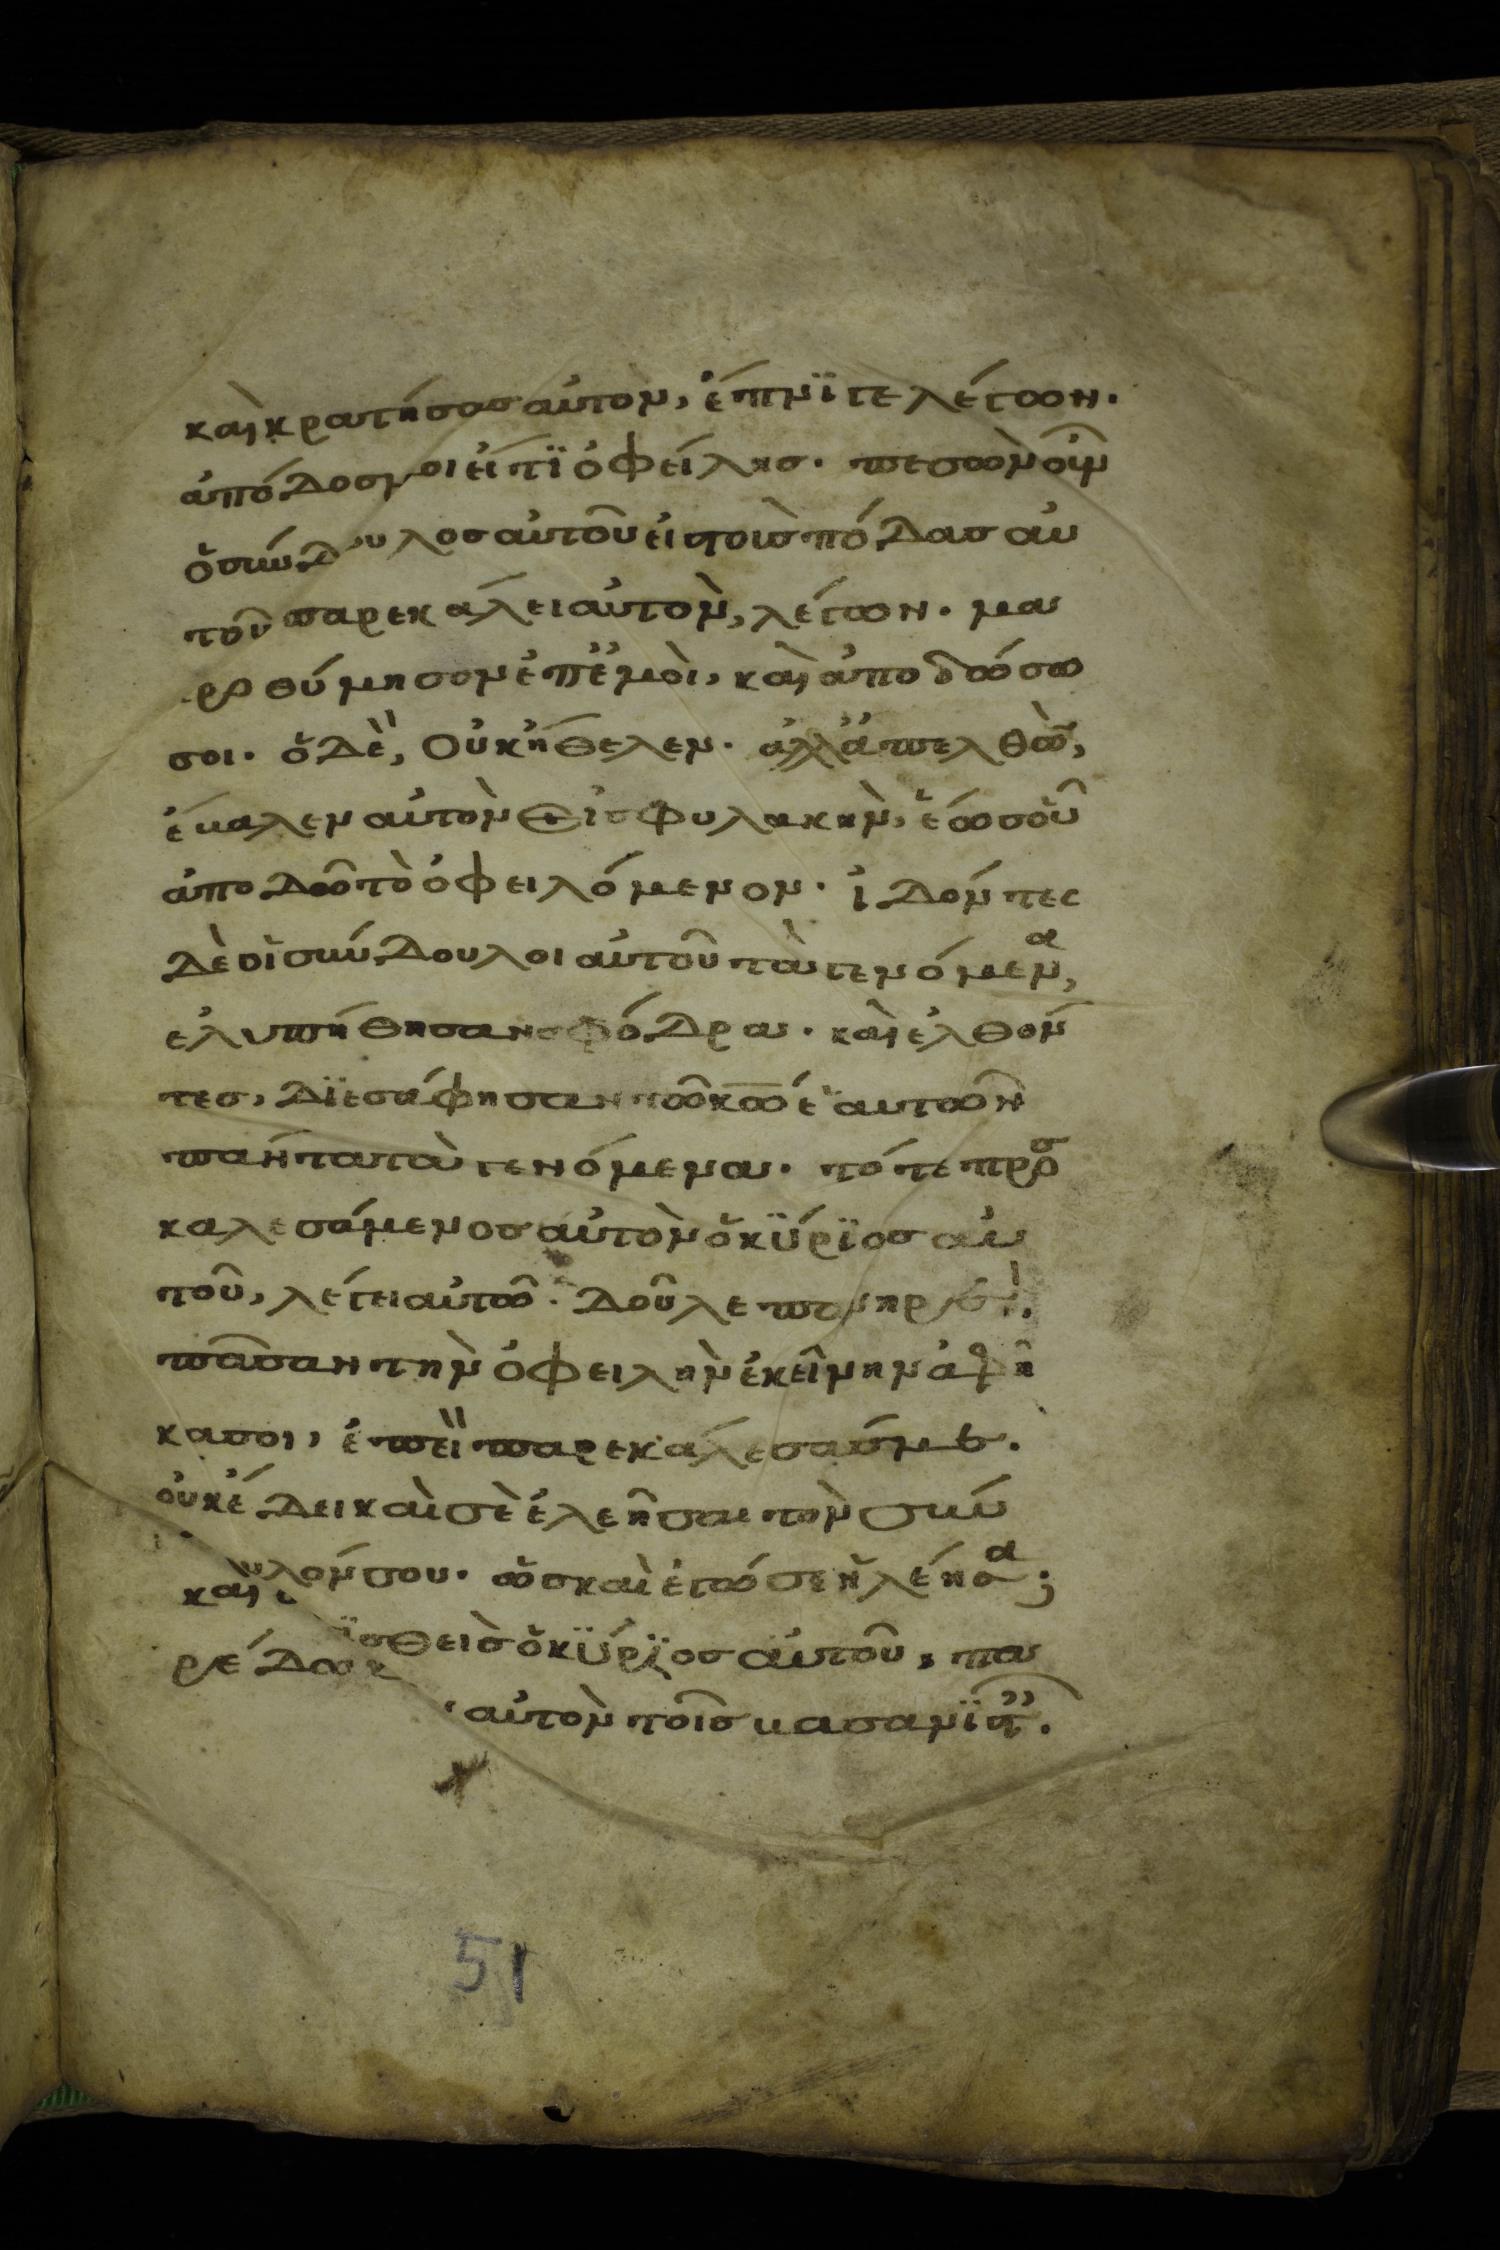 καὶ κρατήσας αὐτὸν, ἔπνϊγε λέγων.
ἀπόδος μοι εἴ τϊ ὀφείλεισ. πεσὼν οὖν
ὅ σύνδουλος αὐτοῦ εἰς τοὺς πόδας αὐ
τοῦ παρεκάλει αὐτὸν, λέγων. μα
ροθύμησον ἐπ' ἐμοὶ, καὶ ἀποδώσω
σοι. ὅ δὲ, οὐκ ἤθελεν. ἀλλ' ἀπελθὼν,
ἔβαλεν αὐτὸν εἰς φυλακὴν, ἕως οὗ
ἀποδῶ τὸ ὀφειλόμενον. ἰδόντες
δὲ οἱ σύνδουλοι αὐτοῦ τὰ γενόμενα,
ἐλυπήθησαν σφόδρα. καὶ ἐλθόν
τες, δϊεσάφησαν τῶ κω ἑαυτῶν
πάντα τὰ γενόμενα. τότε προσ
καλεσάμενος αὐτὸν ὅ κϋρϊος αὐ
τοῦ, λέγει αὐτῶ. δοῦλε πονηρὲ.
πᾶσαν τὴν ὀφειλὴν ἐκείνην ἀφῆ
κα σοι, ἐπεὶ παρεκάλεσάς με.
οὐκ ἔδει καὶ σὲ ἐλεῆσαι τὸν σύν
δουλόν σου. ὥς καὶ ἐγώ σε ἠλέησα;
καὶ ὀργϊσθεὶς ὅ κϋρϊος αὐτοῦ, πα
ρέδωκεν αὐτὸν τοῖς βασανϊστ.
51